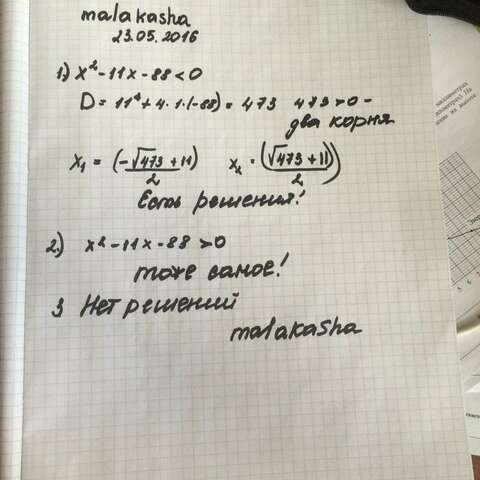 malakasha
23.05.2016
1.) x² - 11x - 88 < 0
D = 11² + 4·1·(-88) = 473 473 > 0 -
два корня
x₁ = (-√473 + 11)/2 x₂ = (√473 + 11)/2
Есть решения!
2.) x² - 11x - 88 > 0
тоже самое!
3 Нет решений
malakasha